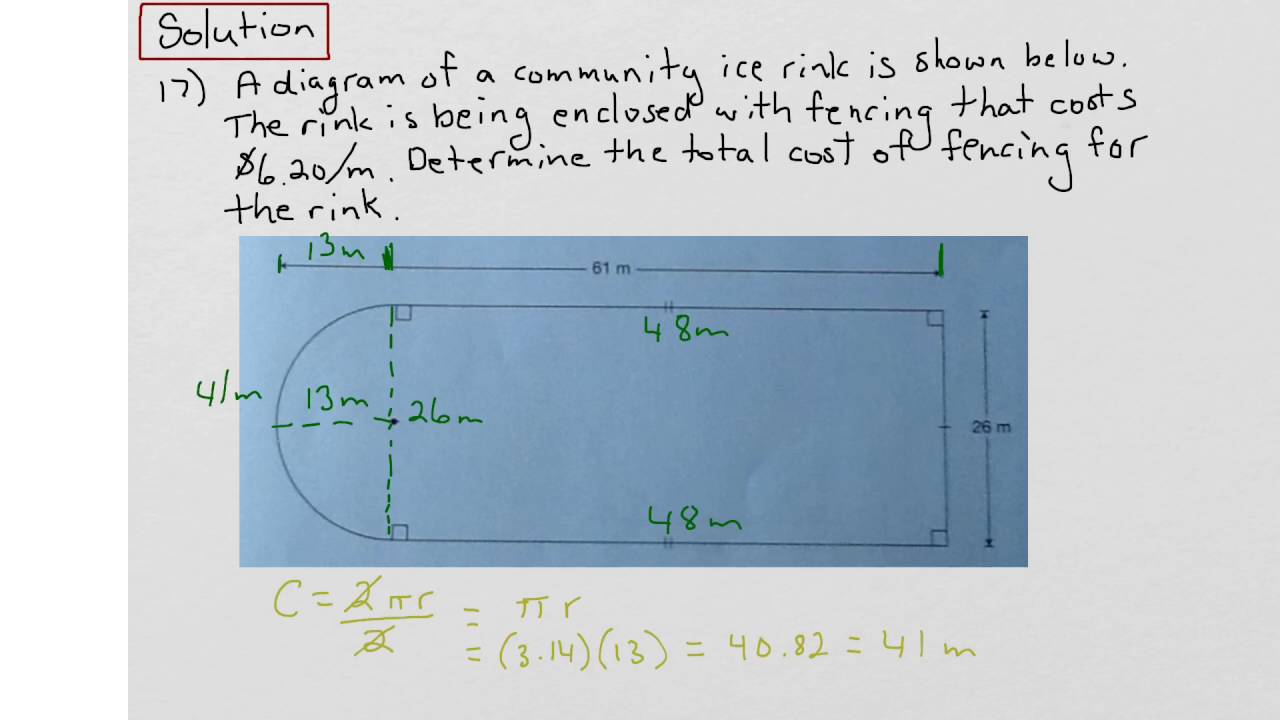 Solution
17) A diagram of a community ice rink is shown below.
The rink is being enclosed with fencing that costs
$6.20/m. Determine the total cost of fencing for
the rink.
13m
61 m
48m
41m
13m
26m
26 m
48m
C = 2πr/2 = πr
= (3.14)(13) = 40.82 = 41 m